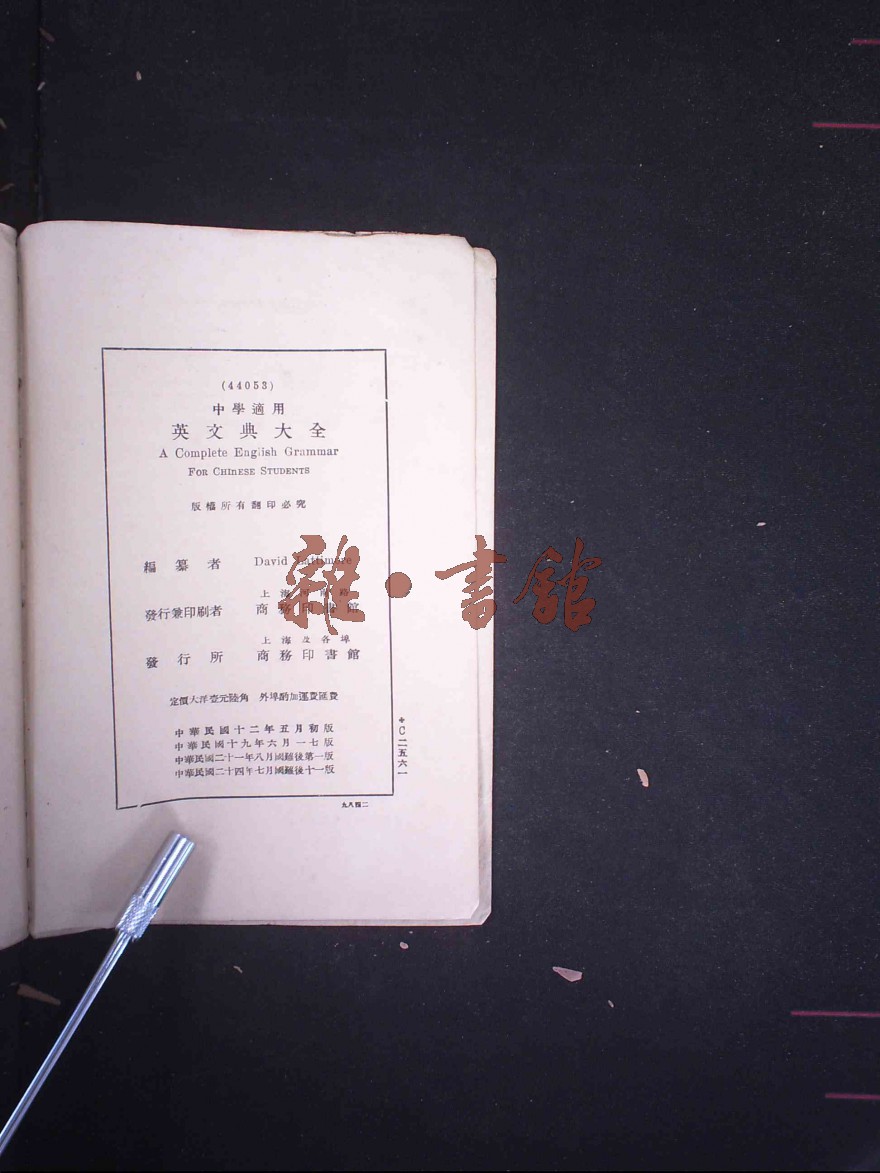 (44053)
中學適用
英文典大全
A Complete English Grammar
FOR CHINESE STUDENTS
版權所有翻印必究
編纂者 David Lattimore
上海河南路
發行兼印刷者 商務印書館
上海及各埠
發行所 商務印書館
定價大洋壹元陸角 外埠酌加運費匯費
中華民國十二年五月初版
中華民國十九年六月一七版
中華民國二十一年八月國難後第一版
中華民國二十四年七月國難後十一版
＊C二五六一
雜·書館